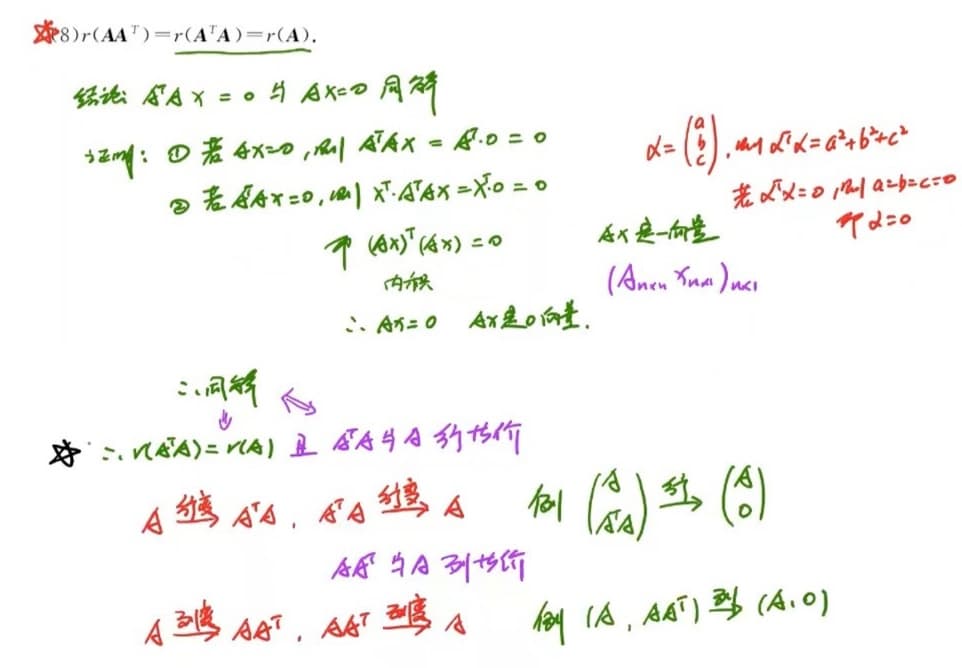 (8) r(AAᵀ)=r(AᵀA)=r(A).
结论: AᵀAx=0与Ax=0同解
证明: ① 若Ax=0,则AᵀAx=Aᵀ·0=0
② 若AᵀAx=0,则xᵀ·AᵀAx=xᵀ·0=0
即 (Ax)ᵀ(Ax)=0
内积
∴ Ax=0 Ax是0向量.
α=(a b c),则αᵀα=a²+b²+c²
若αᵀα=0,则a=b=c=0
即α=0
Ax是一向量
(Aₙₓₙ xₙₓ₁)ₙₓ₁
∴同解
∴ r(AᵀA)=r(A) 且 AᵀA与A行等价
A 行变→ AᵀA, AᵀA 行变→ A 例 (A AᵀA) 行→ (A 0)
AAᵀ与A列等价
A 列变→ AAᵀ, AAᵀ 列变→ A 例 (A, AAᵀ) 列→ (A,0)